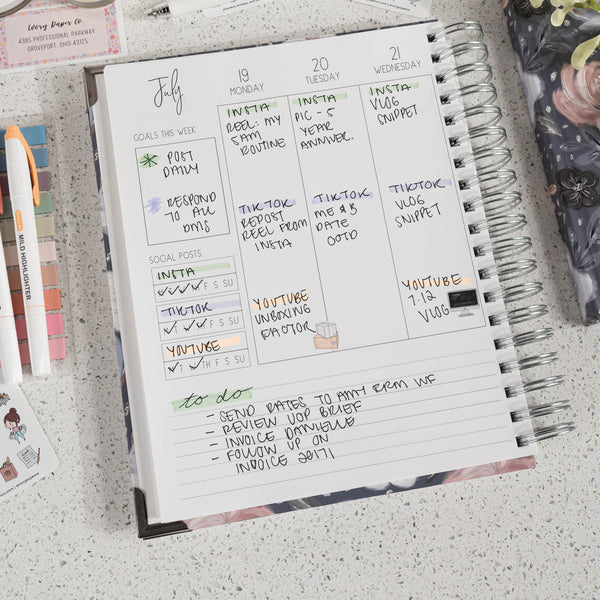 Ivory Paper Co
4385 PROFESSIONAL PARKWAY
GROVEPORT, OHIO 43125
MILD HIGHLIGHTER
July
19
MONDAY
20
TUESDAY
21
WEDNESDAY
GOALS THIS WEEK
POST
DAILY
RESPOND
TO ALL
DMS
SOCIAL POSTS
INSTA
F S SU
TIKTOK
F S SU
YOUTUBE
T TH F S SU
INSTA
REEL: MY
5AM
ROUTINE
TIKTOK
REPOST
REEL FROM
INSTA
YOUTUBE
UNBOXING
FACTOR
INSTA
PIC - 5
YEAR
ANNIVER.
TIKTOK
ME & B
DATE
OOTD
INSTA
VLOG
SNIPPET
TIKTOK
VLOG
SNIPPET
YOUTUBE
7.12
VLOG
to do
- SEND DATES TO AMY RRM WF
- REVIEW UOP BRIEF
- INVOICE DANIELLE
- FOLLOW UP ON
INVOICE 20171